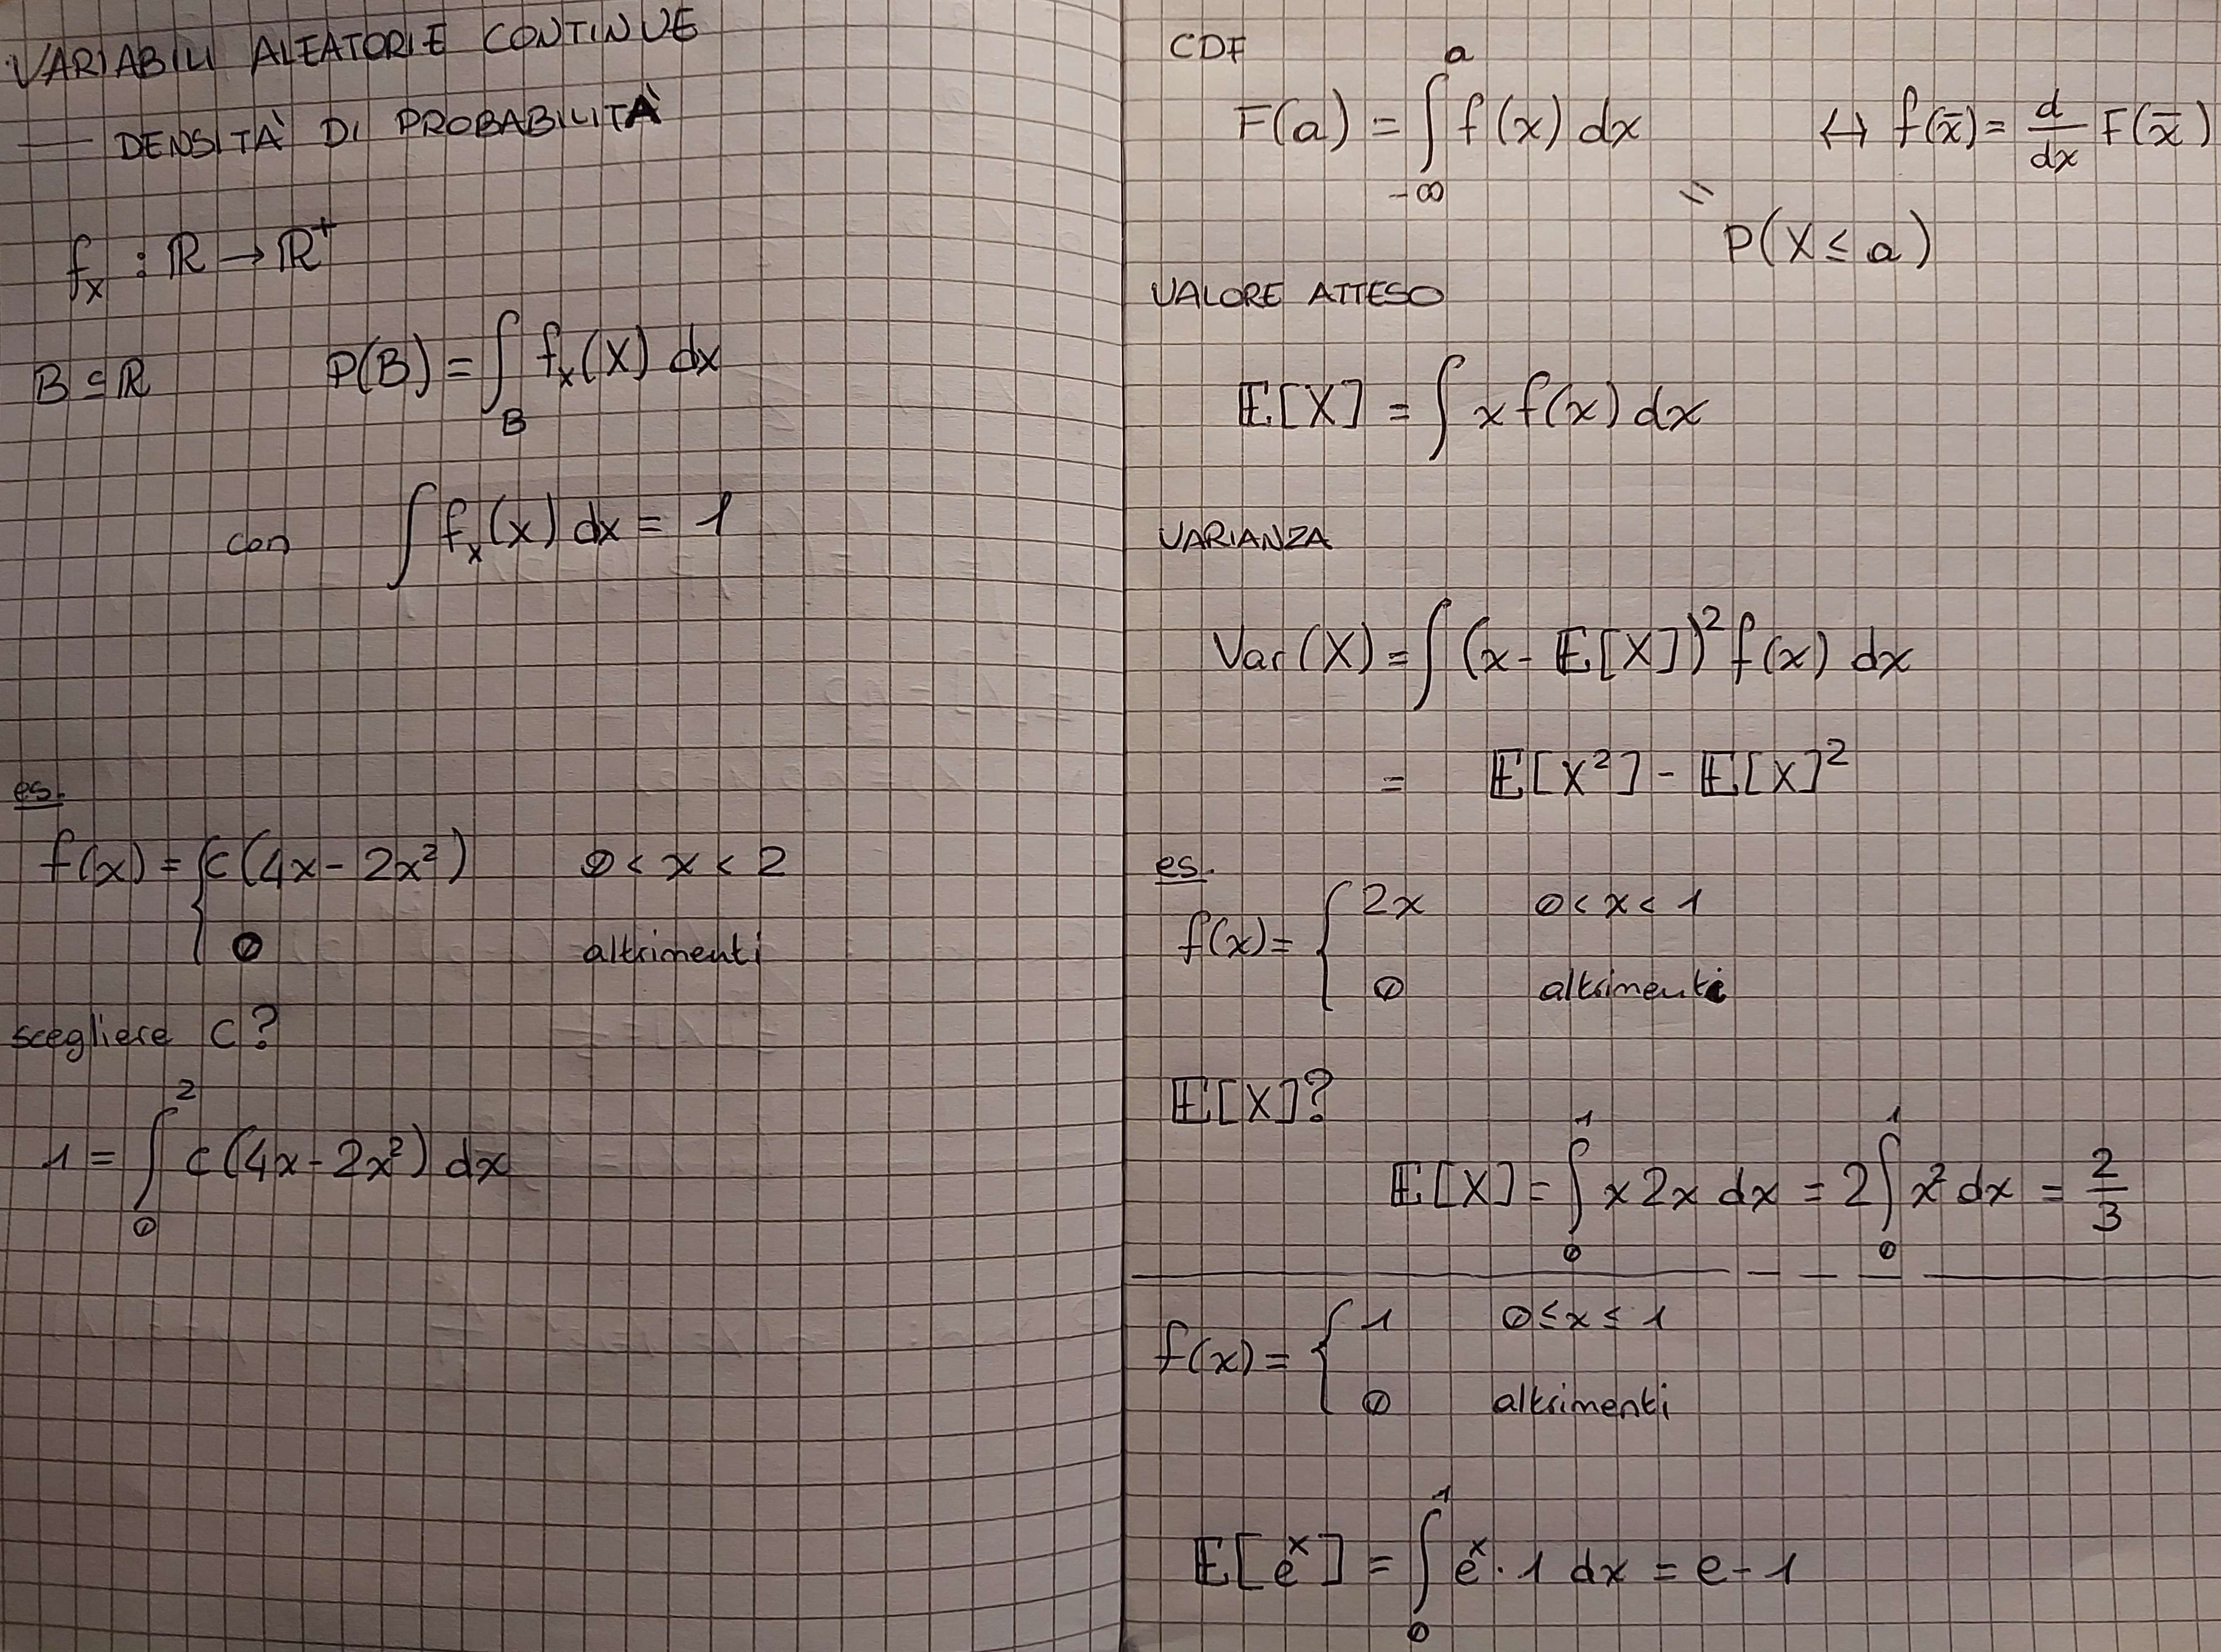 VARIABILI ALEATORIE CONTINUE
— DENSITÀ DI PROBABILITÀ
fₓ : ℝ → ℝ⁺
B ⊆ ℝ P(B) = ∫_B fₓ(X) dx
con ∫ fₓ(x) dx = 1
es.
f(x) = { c(4x - 2x²) 0 < x < 2
0 altrimenti
scegliere c?
1 = ∫₀² c(4x - 2x²) dx
CDF
F(a) = ∫_{-∞}^{a} f(x) dx ↔ f(x̄) = d/dx F(x̄)
= P(X ≤ a)
VALORE ATTESO
𝔼[X] = ∫ x f(x) dx
VARIANZA
Var(X) = ∫ (x - 𝔼[X])² f(x) dx
= 𝔼[X²] - 𝔼[X]²
es.
f(x) = { 2x 0 < x < 1
0 altrimenti
𝔼[X]?
𝔼[X] = ∫₀¹ x 2x dx = 2 ∫₀¹ x² dx = 2/3
f(x) = { 1 0 ≤ x ≤ 1
0 altrimenti
𝔼[eˣ] = ∫₀¹ eˣ · 1 dx = e - 1